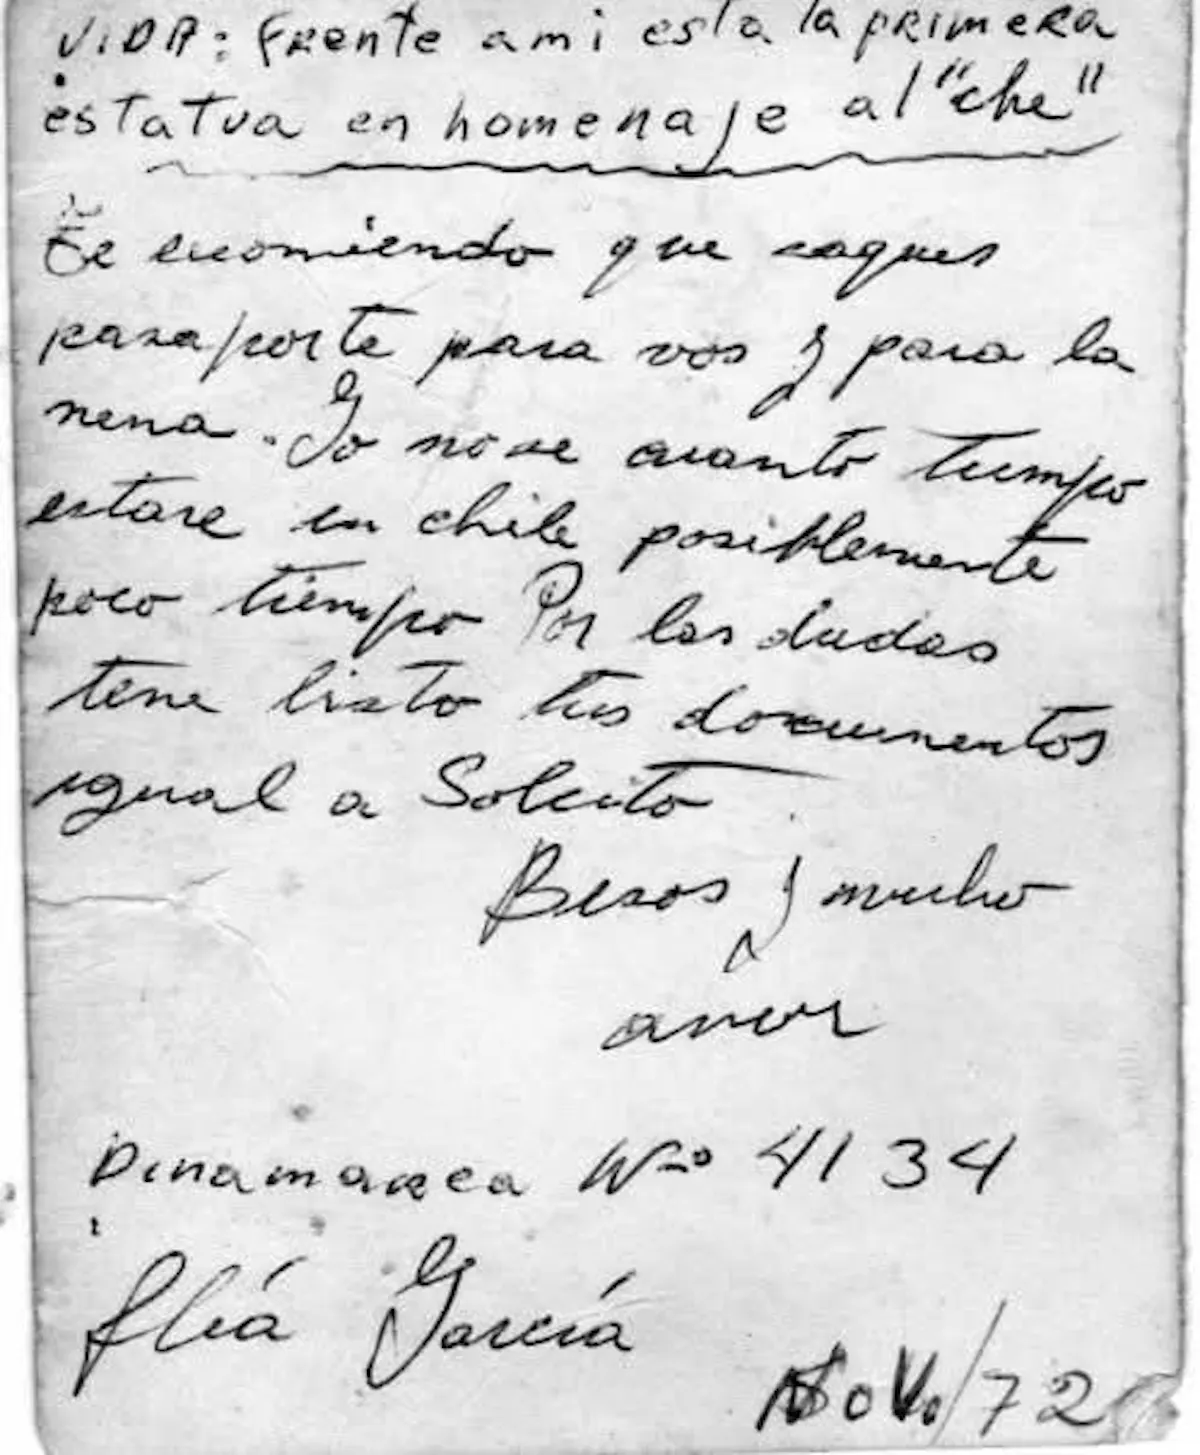 VIDA: frente ami esta la primera
estatua en homenaje al "che"
Te encomiendo que saques
pasaporte para vos y para la
nena. Yo no se cuanto tiempo
estare en chile posiblemente
poco tiempo Por las dudas
tene listo tus documentos
igual a Solcito
Besos y mucho
amor
Dinamarca Nº 4134
flia García
Nov./72